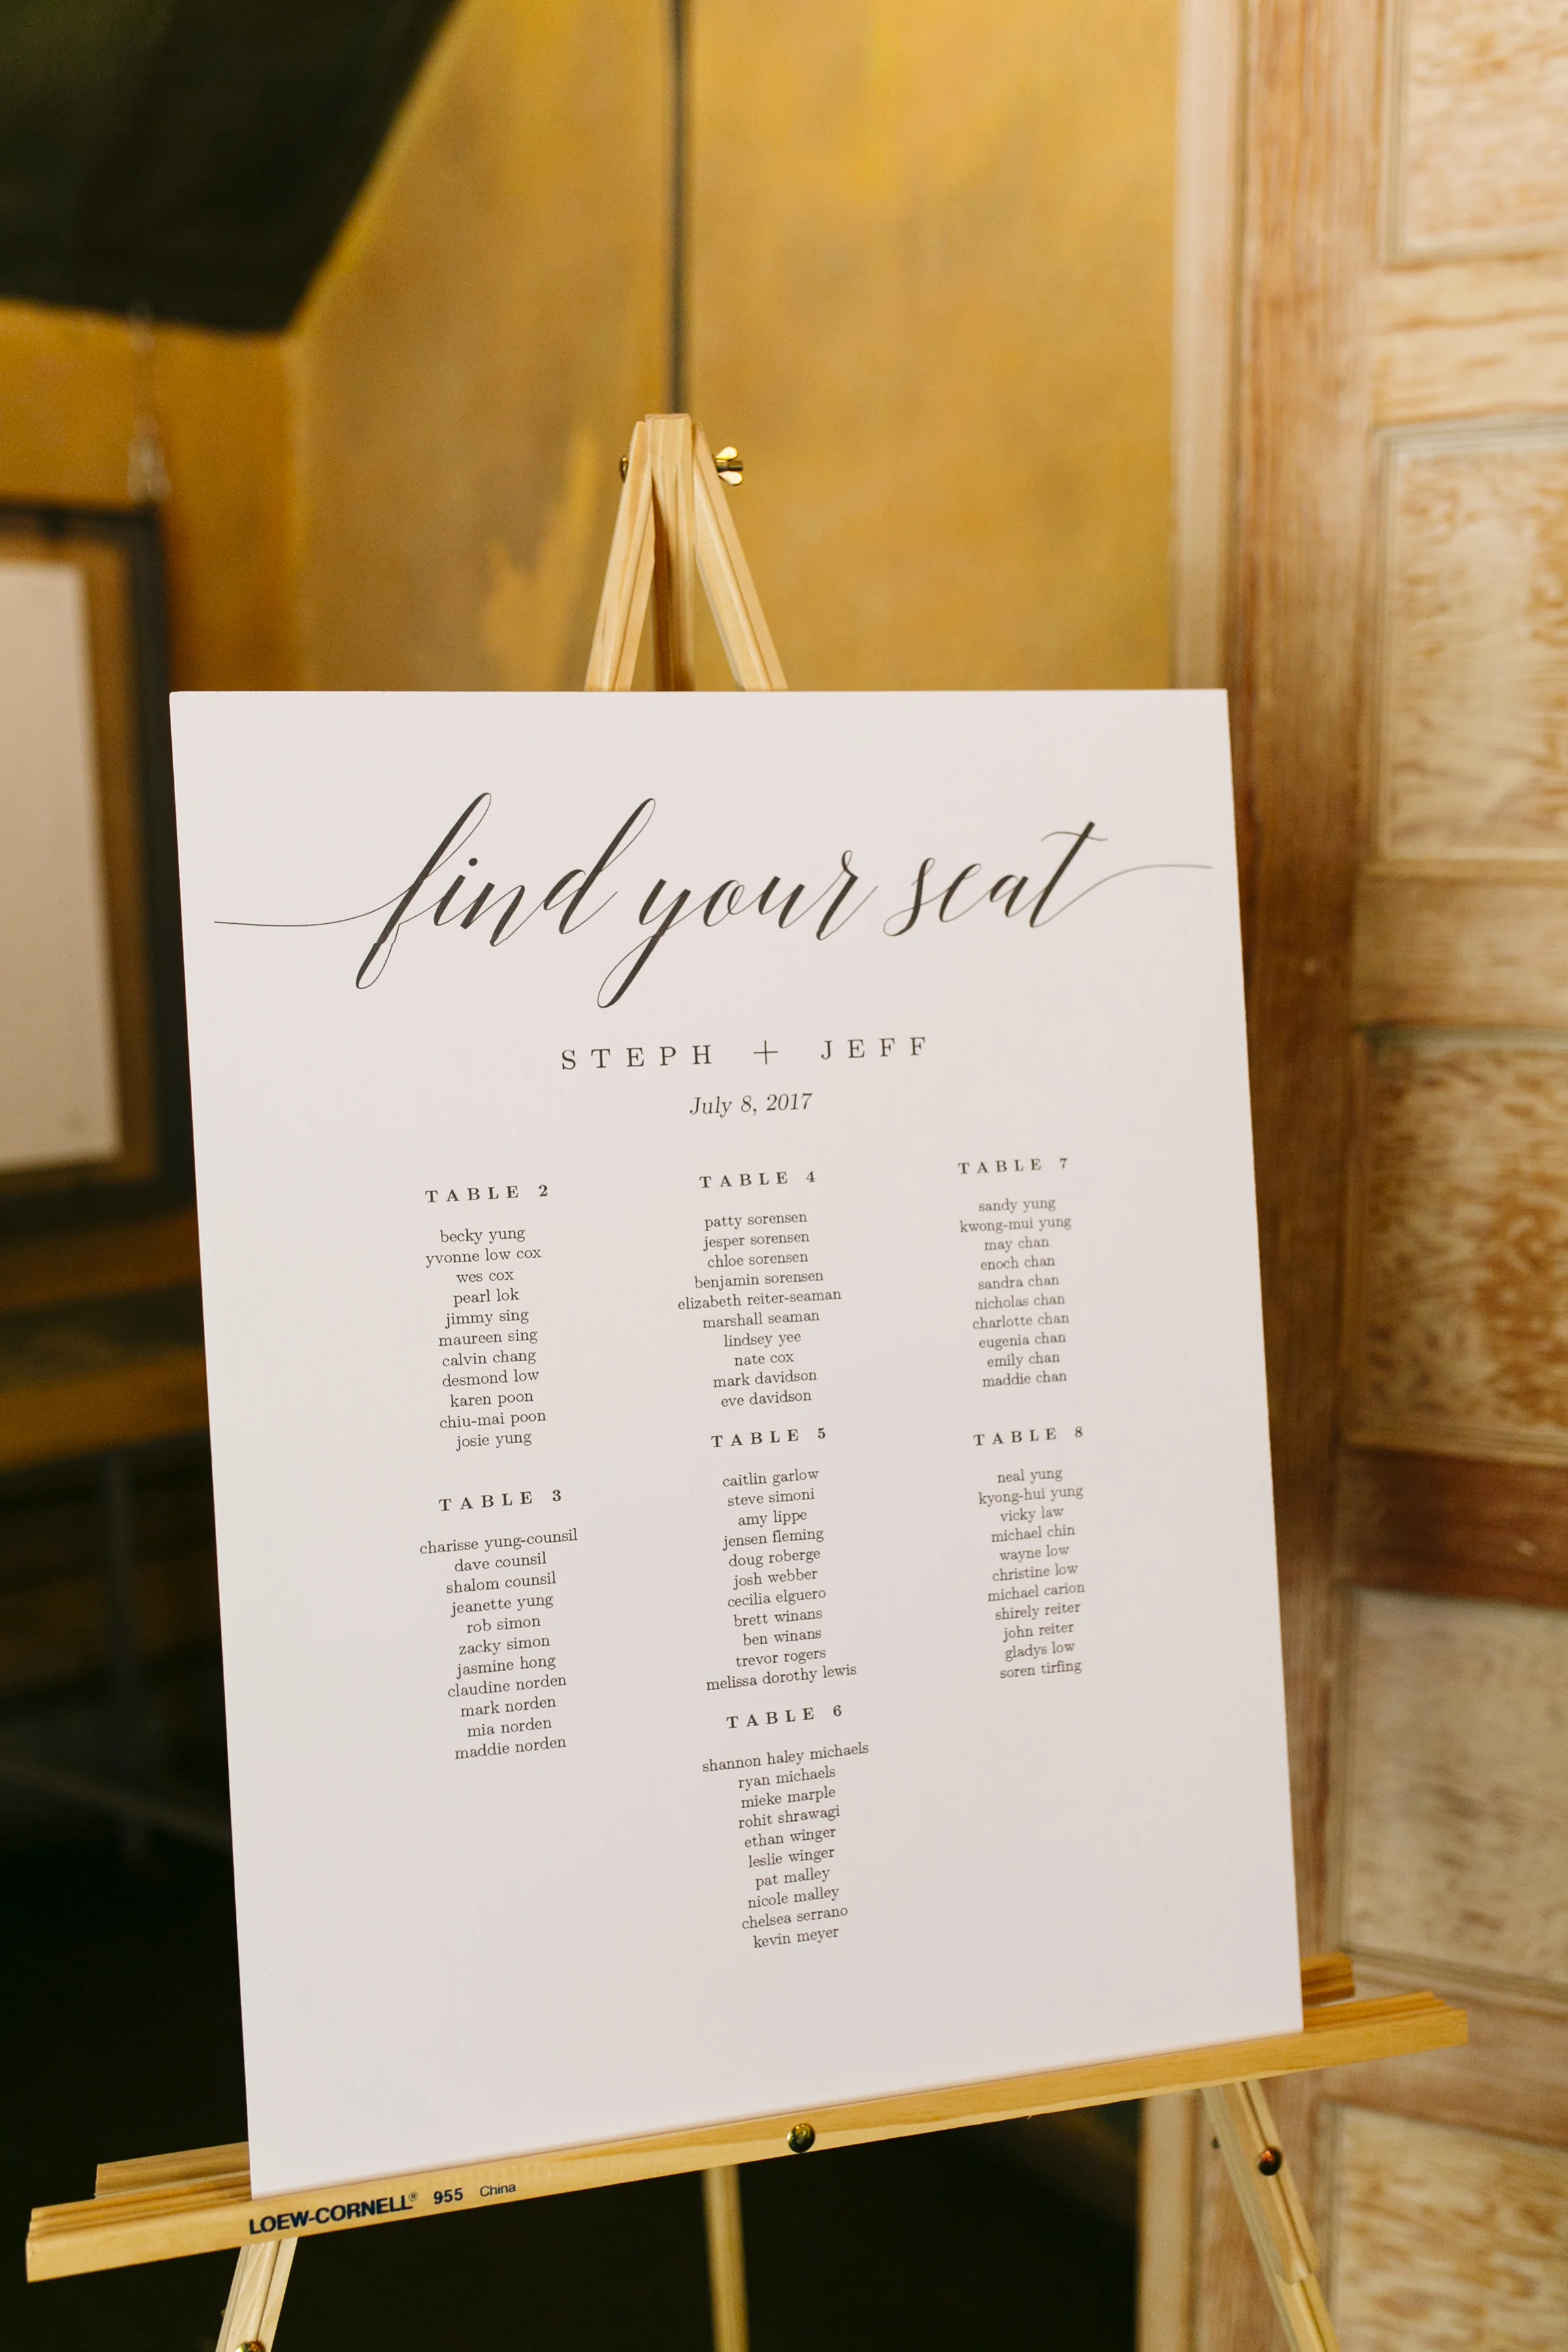 find your seat
STEPH + JEFF
July 8, 2017
TABLE 2
becky yung
yvonne low cox
wes cox
pearl lok
jimmy sing
maureen sing
calvin chang
desmond low
karen poon
chiu-mai poon
josie yung
TABLE 3
charisse yung-counsil
dave counsil
shalom counsil
jeanette yung
rob simon
zacky simon
jasmine hong
claudine norden
mark norden
mia norden
maddie norden
TABLE 4
patty sorensen
jesper sorensen
chloe sorensen
benjamin sorensen
elizabeth reiter-seaman
marshall seaman
lindsey yee
nate cox
mark davidson
eve davidson
TABLE 5
caitlin garlow
steve simoni
amy lippe
jensen fleming
doug roberge
josh webber
cecilia elguero
brett winans
ben winans
trevor rogers
melissa dorothy lewis
TABLE 6
shannon haley michaels
ryan michaels
mieke marple
rohit shrawagi
ethan winger
leslie winger
pat malley
nicole malley
chelsea serrano
kevin meyer
TABLE 7
sandy yung
kwong-mui yung
may chan
enoch chan
sandra chan
nicholas chan
charlotte chan
eugenia chan
emily chan
maddie chan
TABLE 8
neal yung
kyong-hui yung
vicky law
michael chin
wayne low
christine low
michael carion
shirely reiter
john reiter
gladys low
soren tirfing
LOEW-CORNELL® 955 China